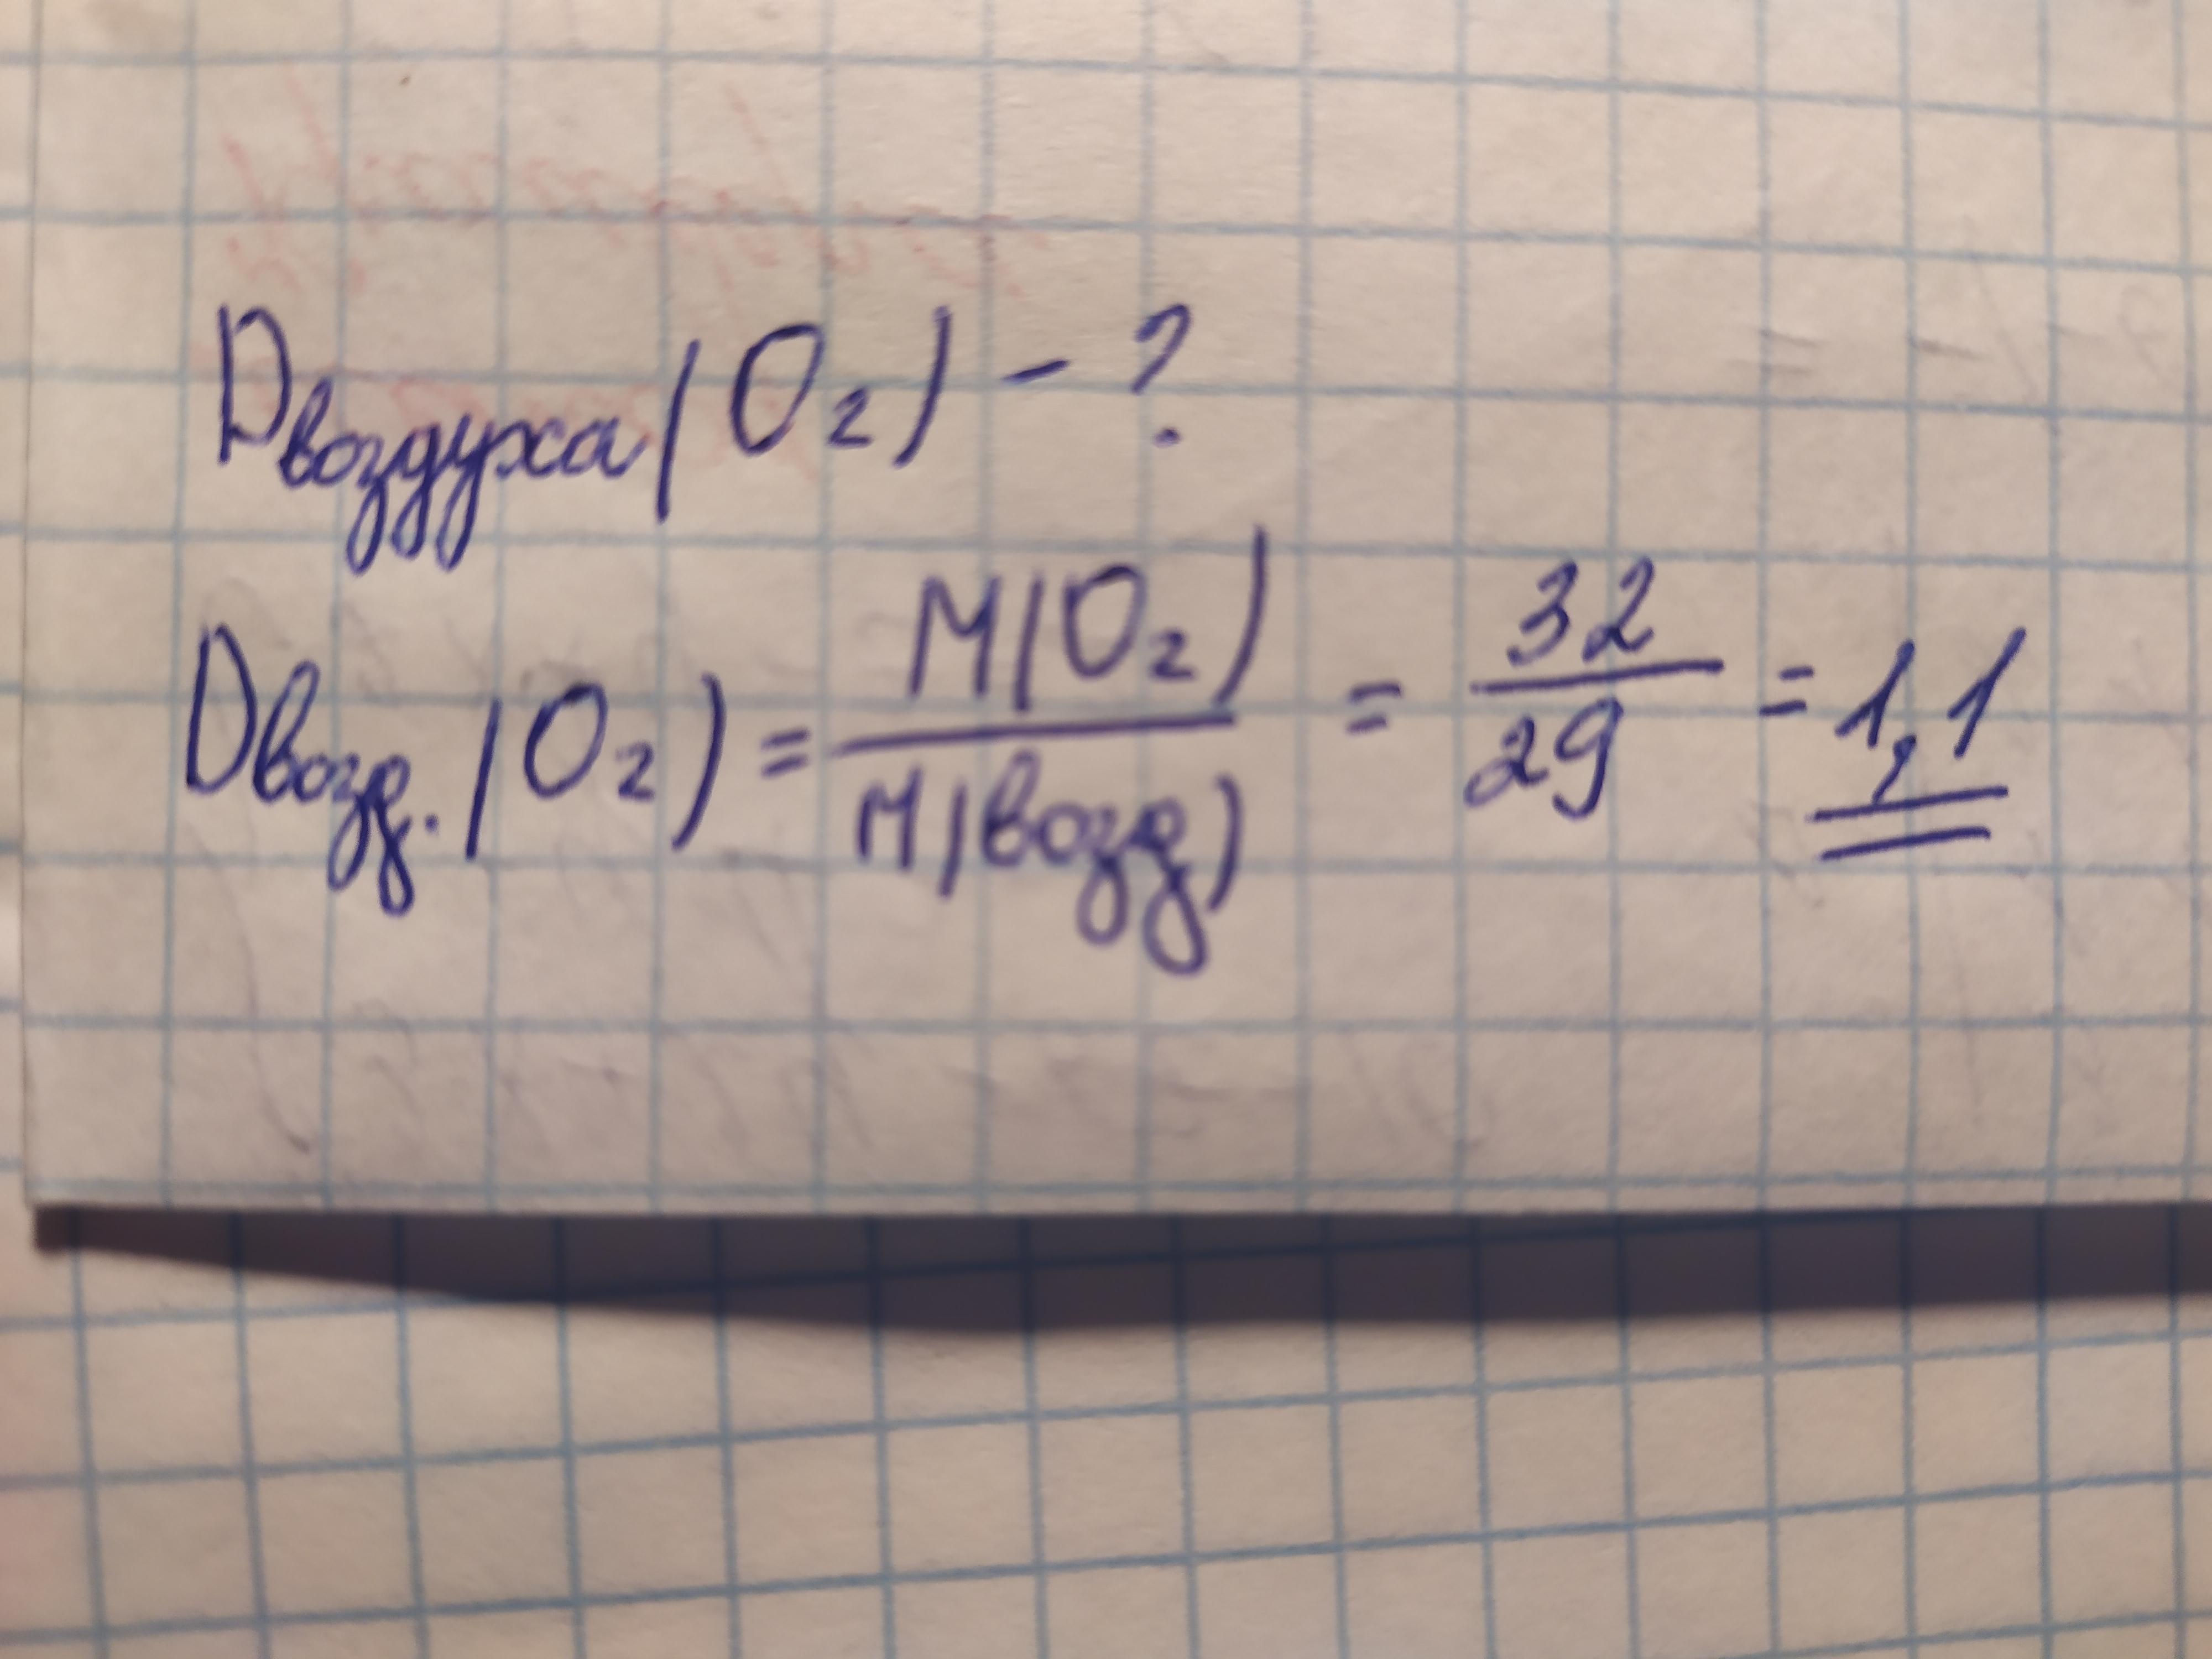 Dвоздуха (O₂) - ?
Dвозд. (O₂) = M(O₂) / M(возд) = 32 / 29 = 1,1